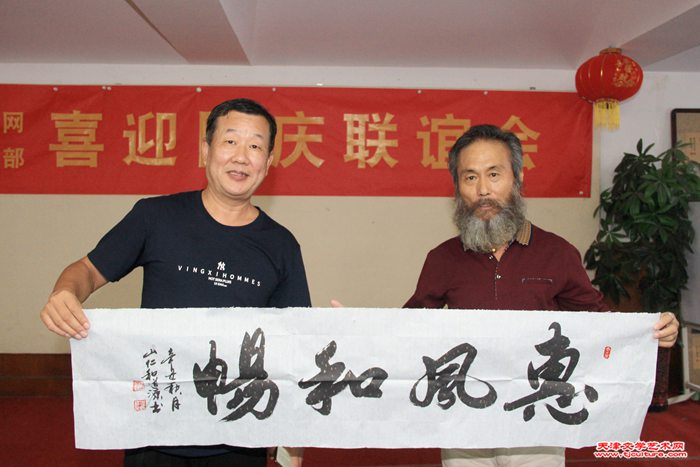 网
部
喜迎 庆联谊会
VINGXIHOMMES
惠風和暢
辛丑秋月
天津文学艺术网
www.tjculture.com